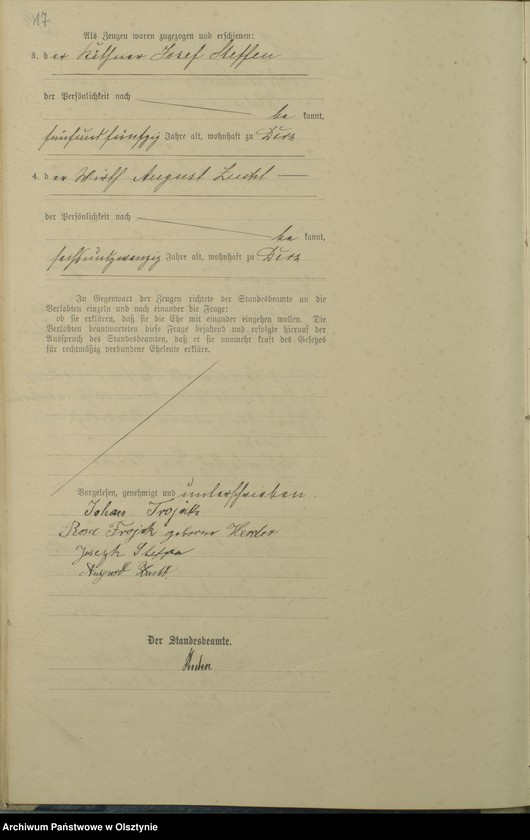 17
Als Zeugen waren zugezogen und erschienen:
3. der Käthner Josef Steffen
der Persönlichkeit nach
be kannt,
fünfundfünfzig Jahre alt, wohnhaft zu
4. der Wirth August
der Persönlichkeit nach
be kannt,
sechsundzwanzig Jahre alt, wohnhaft zu
In Gegenwart der Zeugen richtete der Standesbeamte an die
Verlobten einzeln und nach einander die Frage:
ob sie erklären, daß sie die Ehe mit einander eingehen wollen. Die
Verlobten beantworteten diese Frage bejahend und erfolgte hierauf der
Ausspruch des Standesbeamten, daß er sie nunmehr kraft des Gesetzes
für rechtmäßig verbundene Eheleute erkläre.
Vorgelesen, genehmigt und unterschrieben.
Johan Trojak
Rosa Trojak geborne Herder
Joseph
August
Der Standesbeamte.
Archiwum Państwowe w Olsztynie